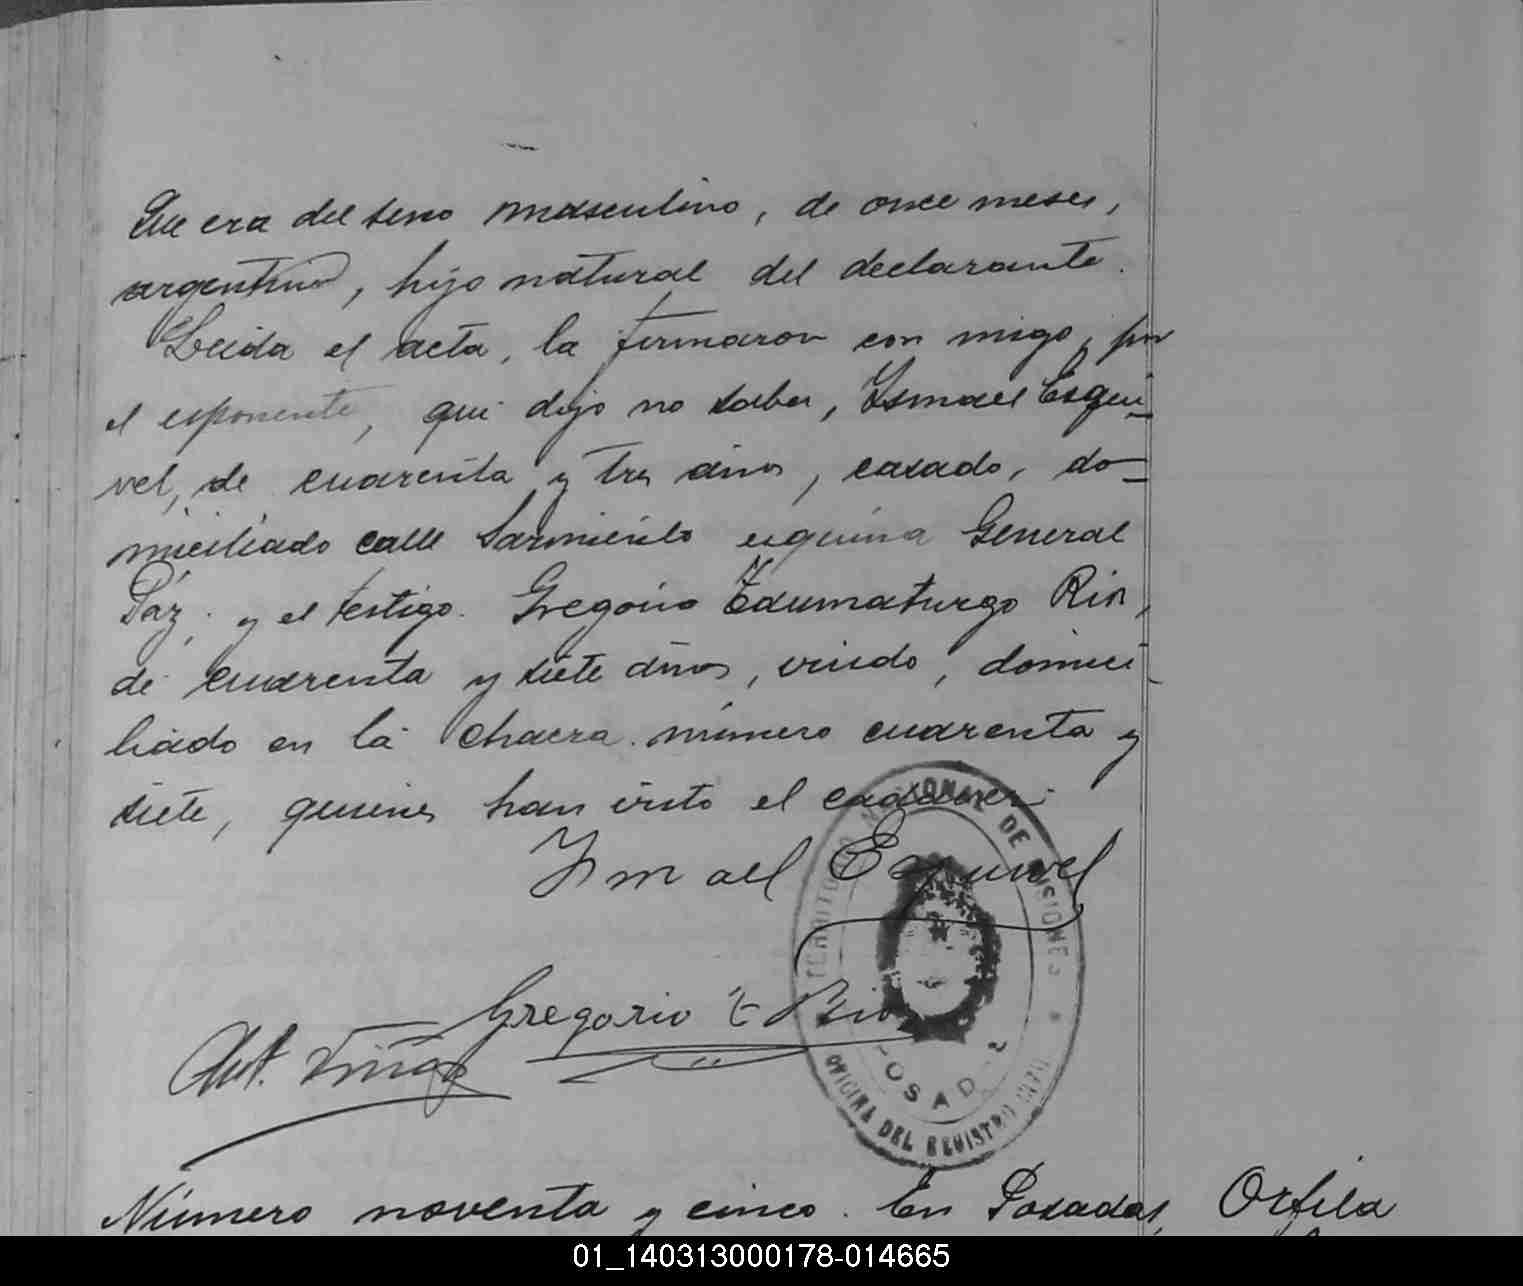 Que era del sexo masculino, de once meses,
argentino, hijo natural del declarante.
Leida el acta, la firmaron con migo, por
el esponente, que dijo no saber, Ismael Esqui-
vel, de cuarenta y tres años, casado, do-
miciliado calle Sarmiento esquina General
Páz; y el testigo Gregorio Taumaturgo Rios,
de cuarenta y siete años, viudo, domici-
liado en la chacra número cuarenta y
siete, quienes han visto el cadaver.
Ismael Esquivel
Gregorio T Rios
TERRITORIO NACIONAL DE MISIONES
POSADAS
OFICINA DEL REGISTRO CIVIL
Número noventa y cinco. En Posadas, Orfila
01_140313000178-014665